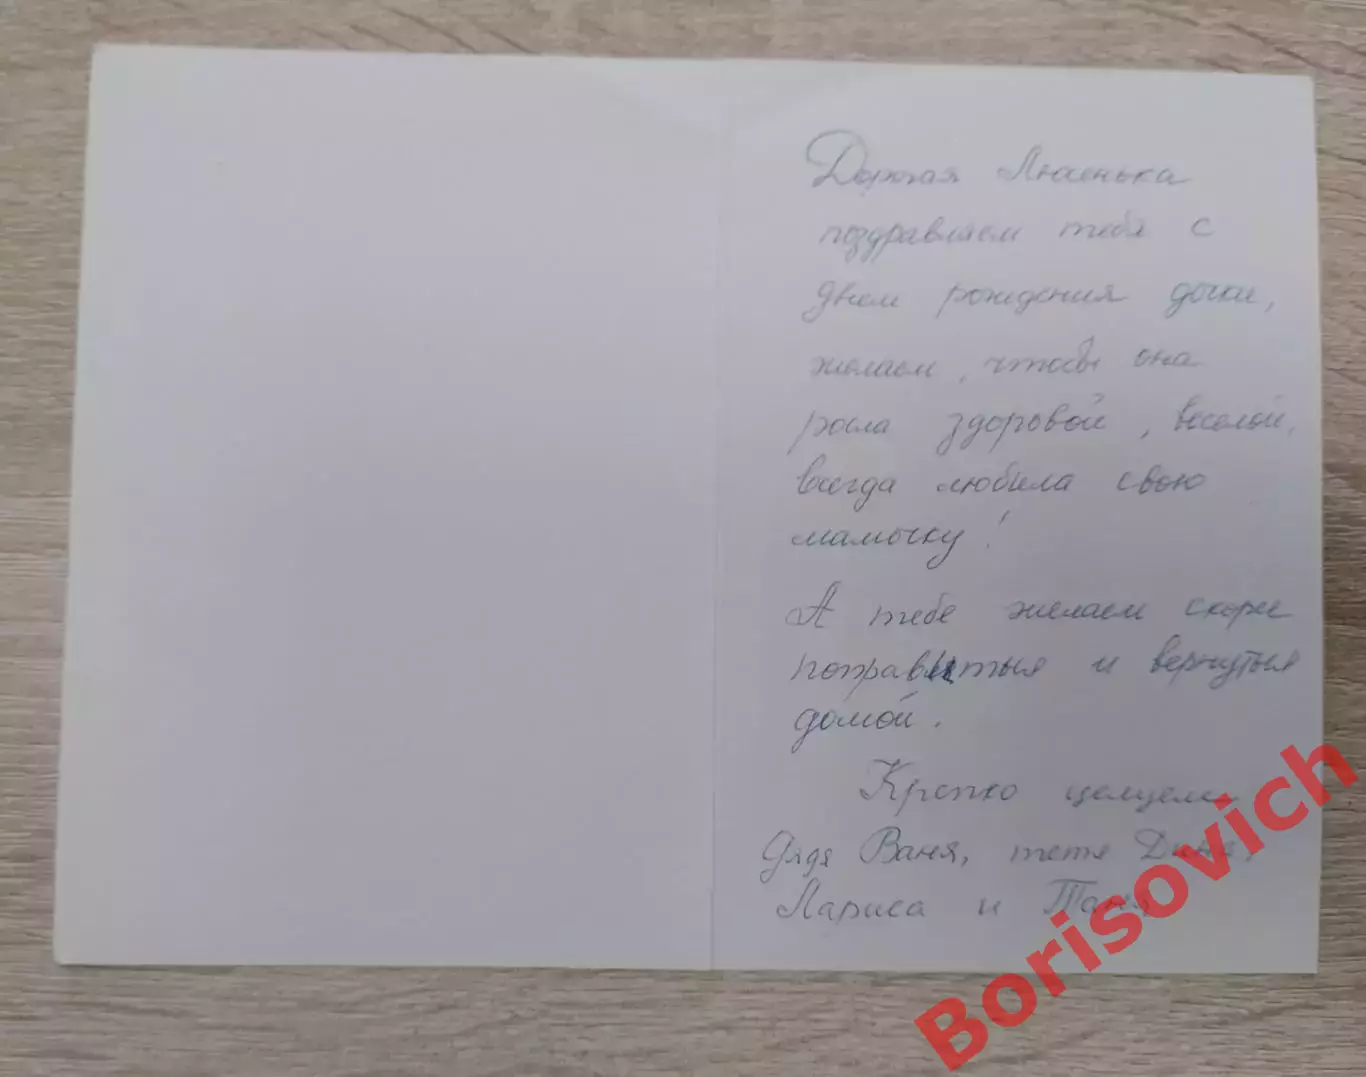 Дорогая Люсенька
поздравляем тебя с
днем рождения дочки,
желаем, чтобы она
росла здоровой, веселой,
всегда любила свою
мамочку!
А тебе желаем скорее
поправится и вернуться
домой.
Крепко целуем
дядя Ваня, тетя Дина,
Лариса и Таня
Borisovich